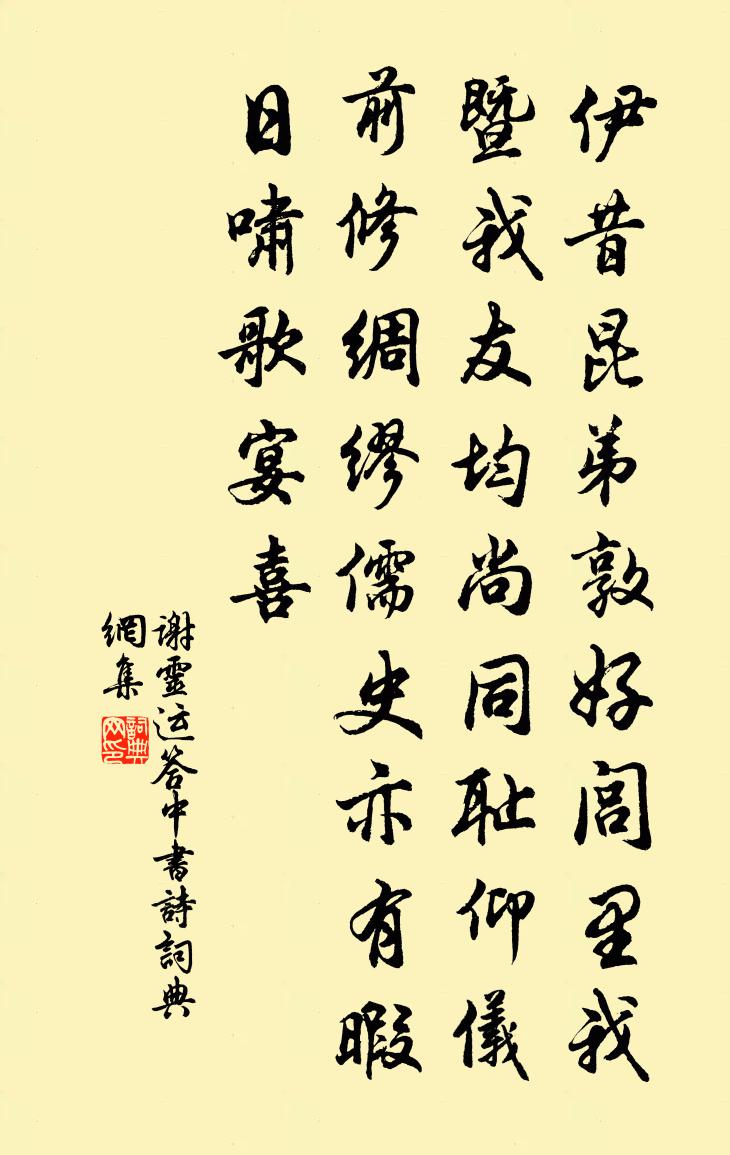 伊昔昆弟敦好閭里我
暨我友均尚同耻仰儀
前修綢缪儒史亦有暇
日嘯歌宴喜
謝靈运答中書詩詞典
網集
詞典
网印